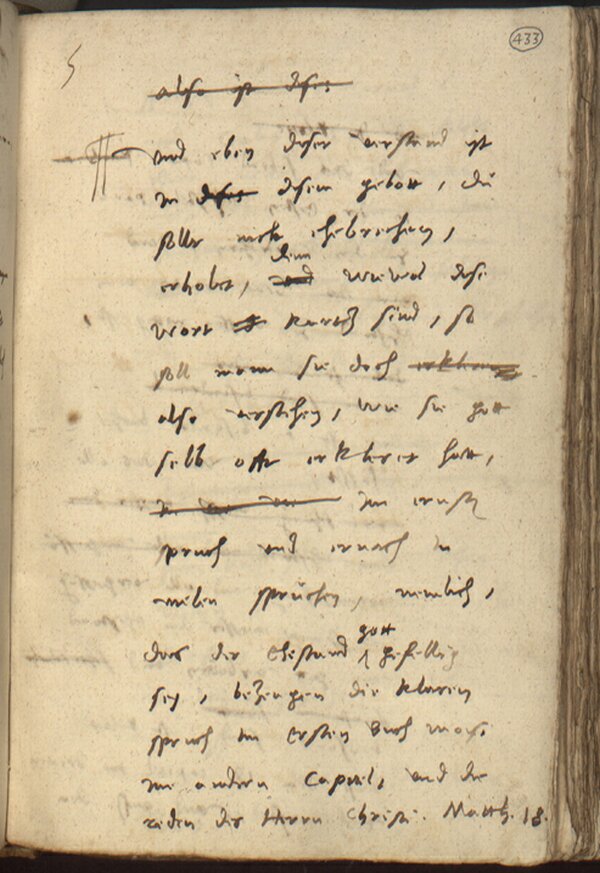 433
5
also ist diser
und eben diser verstand ist
in diser disem gebott, du
sollt nicht ehebrechen,
denn
erholet, und wiewol dise
wort kurtz sind, so
soll mann sie doch
also verstehen, wie sie gott
selb offt erkleret hatt,
im ersten
spruch und ernach in
vielen sprüchen, nemlich,
gott
dass der Ehestand gefellig
sey, bezeugen die klaren
spruch im Ersten Buch mosi
am andern Capitel, und die
reden des Herrn Christi. Matth. 18.